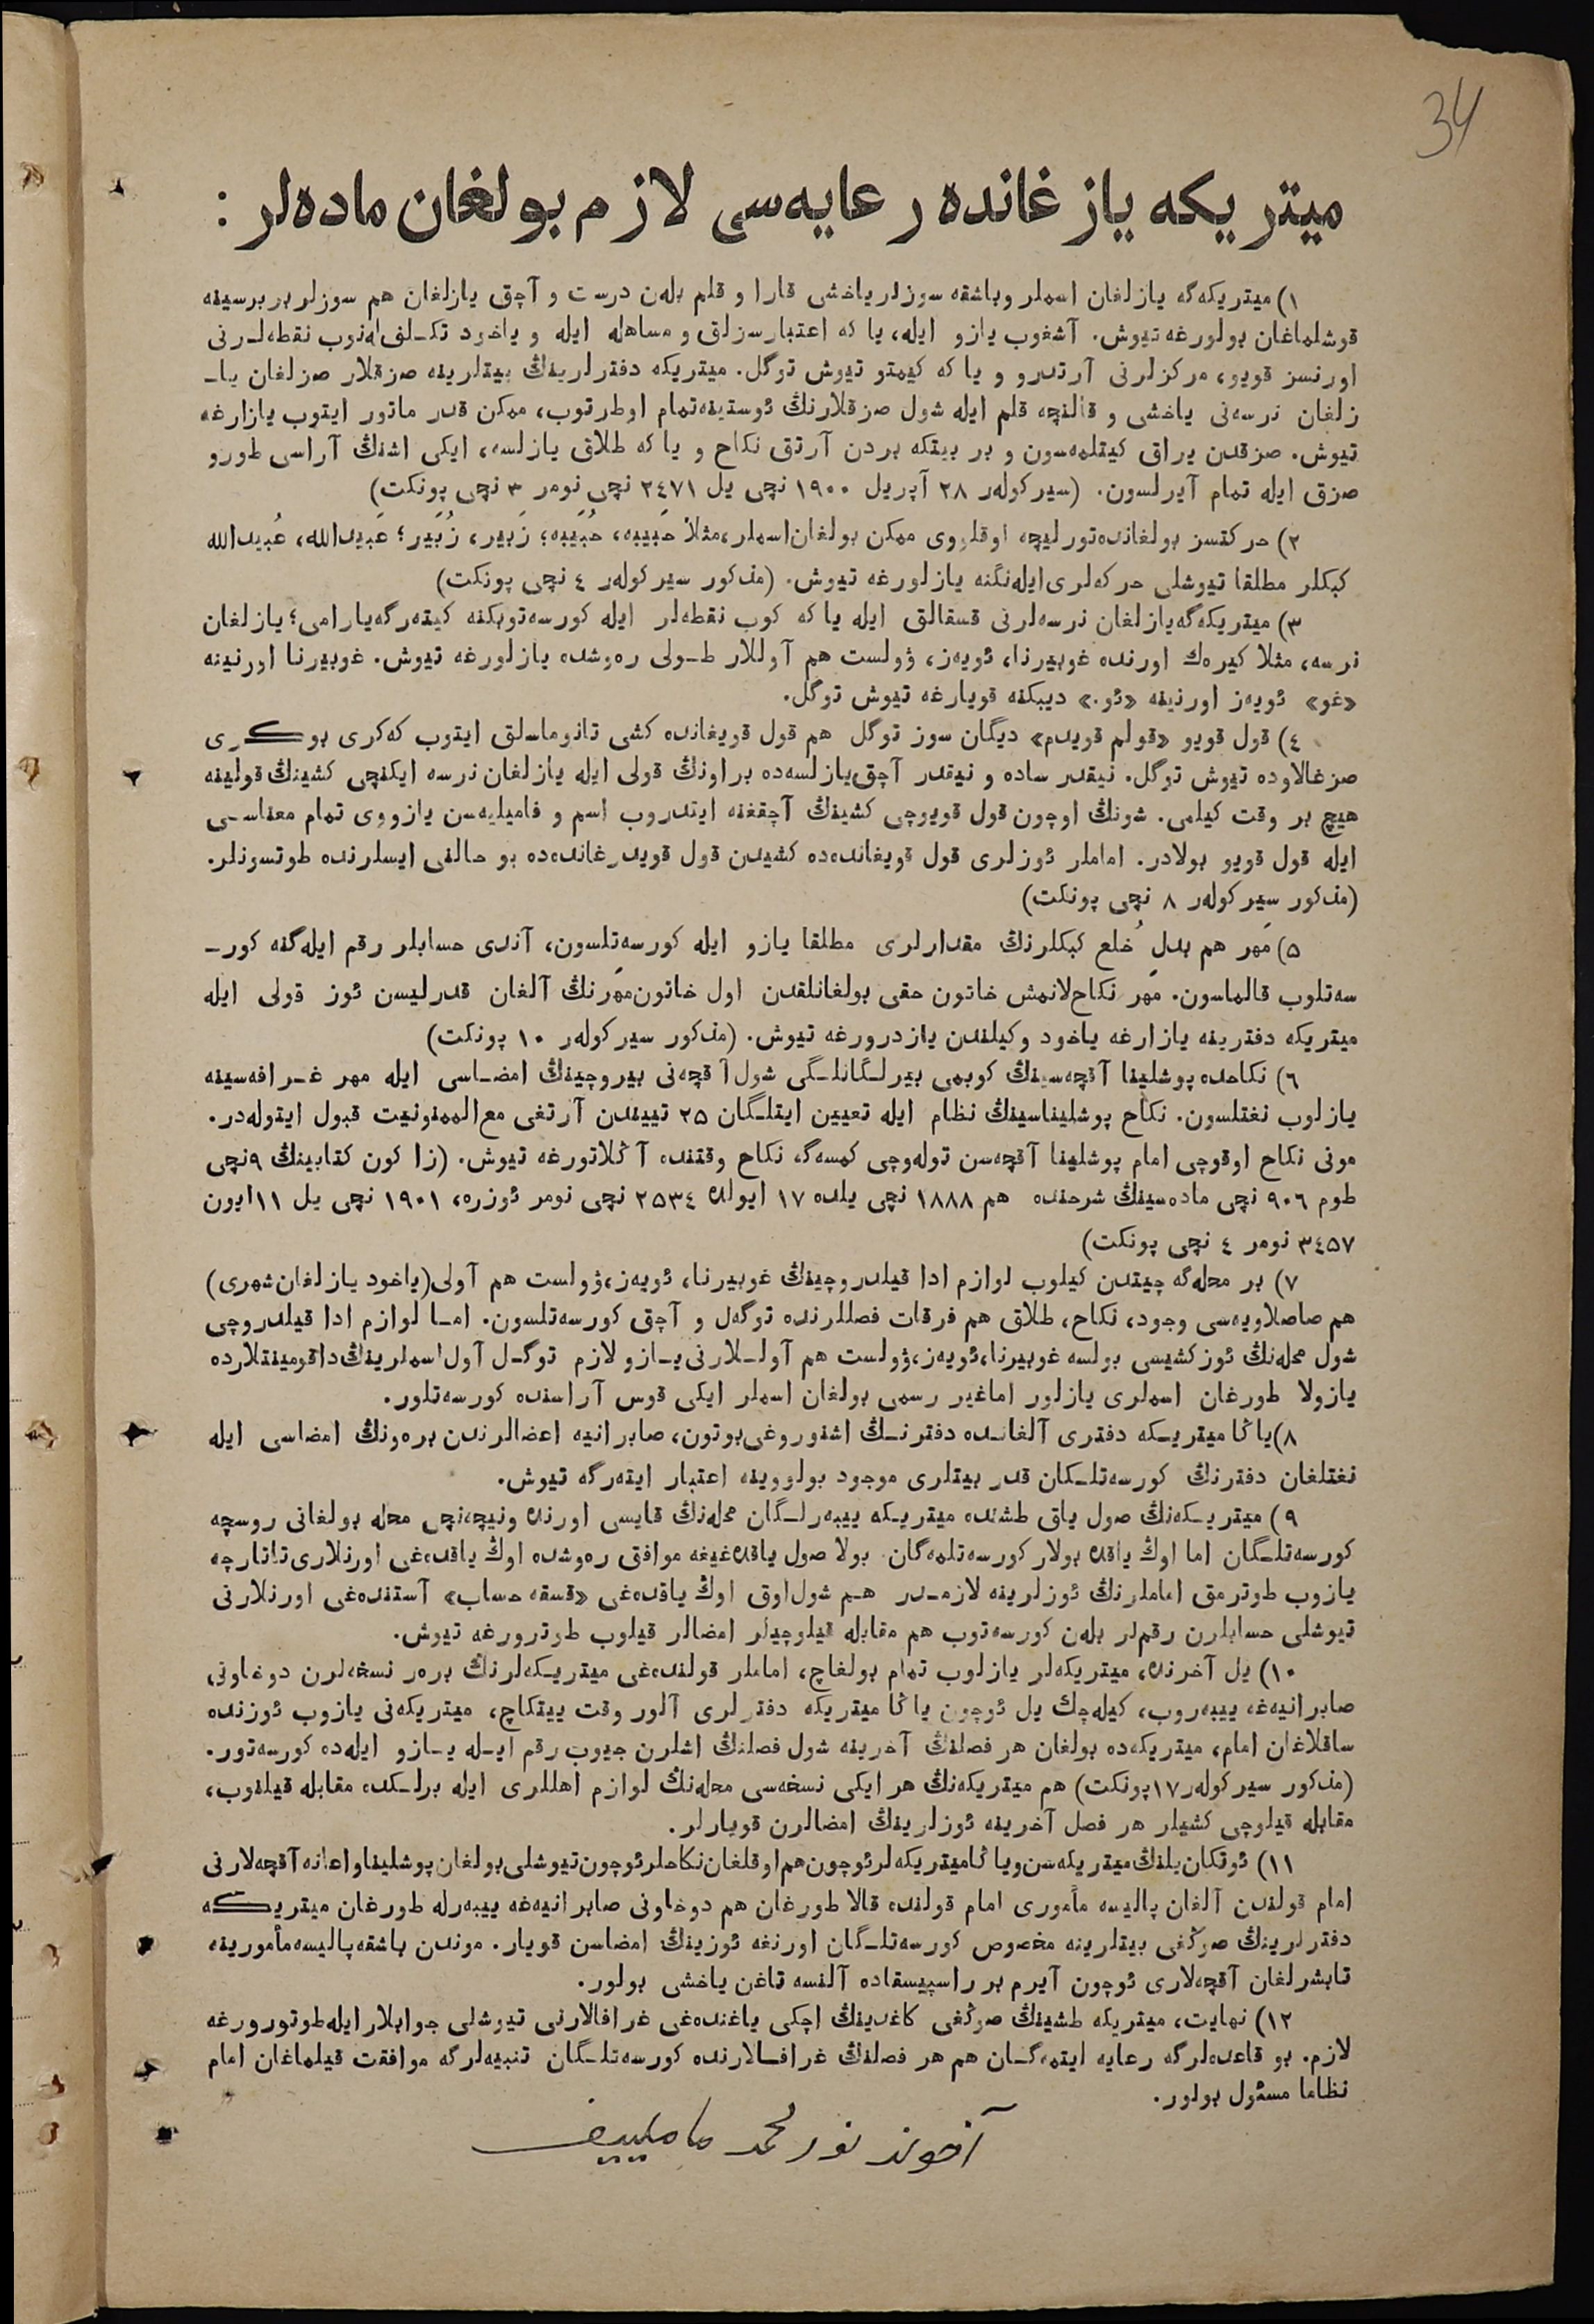 34
ميتريكه يازغانده رعايه‌سى لازم بولغان ماده‌لر :
١) ميتريكه‌گه يازلغان اسملر وباشقه سوزلرياخشى قارا و قلم بله‌ن درست و آچق يازلغان هم سوزلر بربرسينه
قوشلماغان بولورغه تيوش. آشغوب يازو ايله، يا كه اعتبارسزلق و مساهله ايله و ياخود تكـلف‌له‌نوب نقطه‌لـرنى
اورنسز قويو، مركزلرنى آرتدرو و يا كه كيمتو تيوش توگل. ميتريكه دفترلرينڭ بيتلرينه صزقلار صزلغان ياـ
زلغان نرسه‌نى ياخشى و قالنچه قلم ايله شول صزقلارنڭ ئوستينه‌تمام اوطرتوب، ممكن قدر ماتور ايتوب يازارغه
تيوش. صزقدن يراق كيتلمه‌سون و بر بيتكه بردن آرتق نكاح و يا كه طلاق يازلسه، ايكى اشنڭ آراسى طورو
صزق ايله تمام آيرلسون. (سيركوله‌ر ٢٨ آپريل ١٩٠٠ نچى يل ٢٤٧١ نچى نومر ٣ نچى پونكت)
٢) حركتسز بولغانده‌تورليچه اوقلووى ممكن بولغان‌اسملر،مثلا حَبيبه، حُبَيبه؛ زَبير، زُبَير؛ عَبيدالله، عُبيدالله
كبكلر مطلقا تيوشلى حركه‌لرى‌ايله‌نگنه يازلورغه تيوش. (مذكور سيركوله‌ر ٤ نچى پونكت)
٣) ميتريكه‌گه‌يازلغان نرسه‌لرنى قسقالق ايله يا كه كوب نقطه‌لر ايله كورسه‌توبكنه كيته‌رگه‌يارامى؛ يازلغان
نرسه، مثلا كيره‌ك اورنده غوبيرنا، ئويه‌ز، ۋولست هم آوللار طـولى ره‌وشده يازلورغه تيوش. غوبيرنا اورنينه
«غو» ئويه‌ز اورنينه «ئو.» ديبكنه قويارغه تيوش توگل.
٤) قول قويو «قولم قويدم» ديگان سوز توگل هم قول قويغانده كشى تانوماسلق ايتوب كه‌كرى بوكـرى
صزغالاوده تيوش توگل. نيقدر ساده و نيقدر آچق‌يازلسه‌ده براونڭ قولى ايله يازلغان نرسه ايكنچى كشينڭ قولينه
هيچ بر وقت كيلمى. شونڭ اوچون قول قويوچى كشينڭ آچقغنه ايتدروب اسم و فاميليه‌سن يازووى تمام معناسـى
ايله قول قويو بولادر. اماملر ئوزلرى قول قويغانده‌ده كشيدن قول قويدرغانده‌ده بو حالنى ايسلرنده طوتسونلر.
(مذكور سيركوله‌ر ٨ نچى پونكت)
٥) مَهر هم بدلِ خُلع كبكلرنڭ مقدارلرى مطلقا يازو ايله كورسه‌تلسون، آندى حسابلر رقم ايله‌گنه كورـ
سه‌تلوب قالماسون. مهر نكاح‌لانمش خاتون حقى بولغانلقدن اول خاتون‌مهرنڭ آلغان قدرليسن ئوز قولى ايله
ميتريكه دفترينه يازارغه ياخود وكيلندن يازدرورغه تيوش. (مذكور سيركوله‌ر ١٠ پونكت)
٦) نكاحده پوشلينا آقچه‌سينڭ كوبمى بيرلـگانلـگى شول آقچه‌نى بيروچينڭ امضـاسى ايله مهر غـرافه‌سينه
يازلوب نغتلسون. نكاح پوشليناسينڭ نظام ايله تعيين ايتلـگان ٢٥ تييندن آرتغى مع‌الممنونيت قبول ايتوله‌در.
مونى نكاح اوقوچى امام پوشلينا آقچه‌سن توله‌وچى كمسه‌گه نكاح وقتنده آڭلاتورغه تيوش. (زاكون كتابينڭ ٩نچى
طوم ٩٠٦ نچى ماده‌سينڭ شرحنده هم ١٨٨٨ نچى يلده ١٧ ايولده ٢٥٣٤ نچى نومر ئوزره، ١٩٠١ نچى يل ١١ايون
٣٤٥٧ نومر ٤ نچى پونكت)
٧) بر محله‌گه چيتدن كيلوب لوازم ادا قيلدروچينڭ غوبيرنا، ئويه‌ز،ۋولست هم آولى(ياخود يازلغان‌شهرى)
هم صاصلاويه‌سى وجود، نكاح، طلاق هم فرقات فصللرنده توگه‌ل و آچق كورسه‌تلسون. امـا لوازم ادا قيلدروچى
شول محله‌نڭ ئوزكشيسى بولسه غوبيرنا،ئويه‌ز،ۋولست هم آولـلارنى يـازو لازم توگـل آول‌اسملرينڭ‌داقومينتلارده
يازولا طورغان اسملرى يازلور اماغير رسمى بولغان اسملر ايكى قوس آراسنده كورسه‌تلور.
٨)ياڭا ميتريـكه دفترى آلغانـده دفترنـڭ اشنوروغى‌بوتون، صابرانيه اعضالرندن بره‌ونڭ امضاسى ايله
نغتلغان دفترنڭ كورسه‌تلـكان قدر بيتلرى موجود بولووينه اعتبار ايته‌رگه تيوش.
٩) ميتريـكه‌نڭ صول ياق طشنده ميتريـكه ييبه‌رلـگان محله‌نڭ قايسى اورنده ونيچه‌نچى محله بولغانى روسچه
كورسه‌تلـگان اما اوڭ ياقده بولار كورسه‌تلمه‌گان. بولا صول ياقده‌غيغه موافق ره‌وشده اوڭ ياقده‌غى اورنلارى‌تاتارچه
يازوب طوترمق اماملرنڭ ئوزلرينه لازمـدر هـم شول‌اوق اوڭ ياقده‌غى «قسقه حساب» آستنده‌غى اورنلارنى
تيوشلى حسابلرن رقم‌لر بله‌ن كورسه‌توب هم مقابله قيلوچيلر امضالر قيلوب طوترورغه تيوش.
١٠) يل آخرنده، ميتريكه‌لر يازلوب تمام بولغاچ، اماملر قولنده‌غى ميتريـكه‌لرنڭ بره‌ر نسخه‌لرن دوخاونى
صابرانيه‌غه ييبه‌روب، كيله‌چك يل ئوچون ياڭا ميتريكه دفترلرى آلور وقت ييتكاچ، ميتريكه‌نى يازوب ئوزنده
ساقلاغان امام، ميتريكه‌ده بولغان هر فصلنڭ آخرينه شول فصلنڭ اشلرن جيوب رقم ايـله يـازو ايله‌ده كورسه‌تور.
(مذكور سيركوله‌ر ١٧پونكت) هم ميتريكه‌نڭ هر ايكى نسخه‌سى محله‌نڭ لوازم اهللرى ايله برلـكده مقابله قيلنوب،
مقابله قيلوچى كشيلر هر فصل آخرينه ئوزلرينڭ امضالرن قويارلر.
١١) ئوتكان‌يلنڭ‌ميتريكه‌سن‌وياڭاميتريكه‌لرئوچون‌هم‌اوقلغان‌نكاحلرئوچون‌تيوشلى‌بولغان‌پوشليناواعانه‌آقچه‌لارنى
امام قولندن آلغان پاليسه مأمورى امام قولنده قالا طورغان هم دوخاونى صابرانيه‌غه ييبه‌رله طورغان ميتريكـه
دفترلرينڭ صوڭغى بيتلرينه مخصوص كورسه‌تلـگان اورنغه ئوزينڭ امضاسن قويار. موندن باشقه‌پاليسه‌مأمورينه
تابشرلغان آقچه‌لارى ئوچون آيرم بر راسپيسقاده آلنسه تاغن ياخشى بولور.
١٢) نهايت، ميتريكه طشينڭ صوڭغى كاغدينڭ اچكى ياغنده‌غى غرافالارنى تيوشلى جوابلار ايله‌طوتورورغه
لازم. بو قاعده‌لرگه رعايه ايتمه‌گـان هم هر فصلنڭ غرافـالارنده كورسه‌تلـگان تنبيه‌لرگه موافقت قيلماغان امام
نظاما مسئول بولور.
آخوند نورمحمد ماملييف